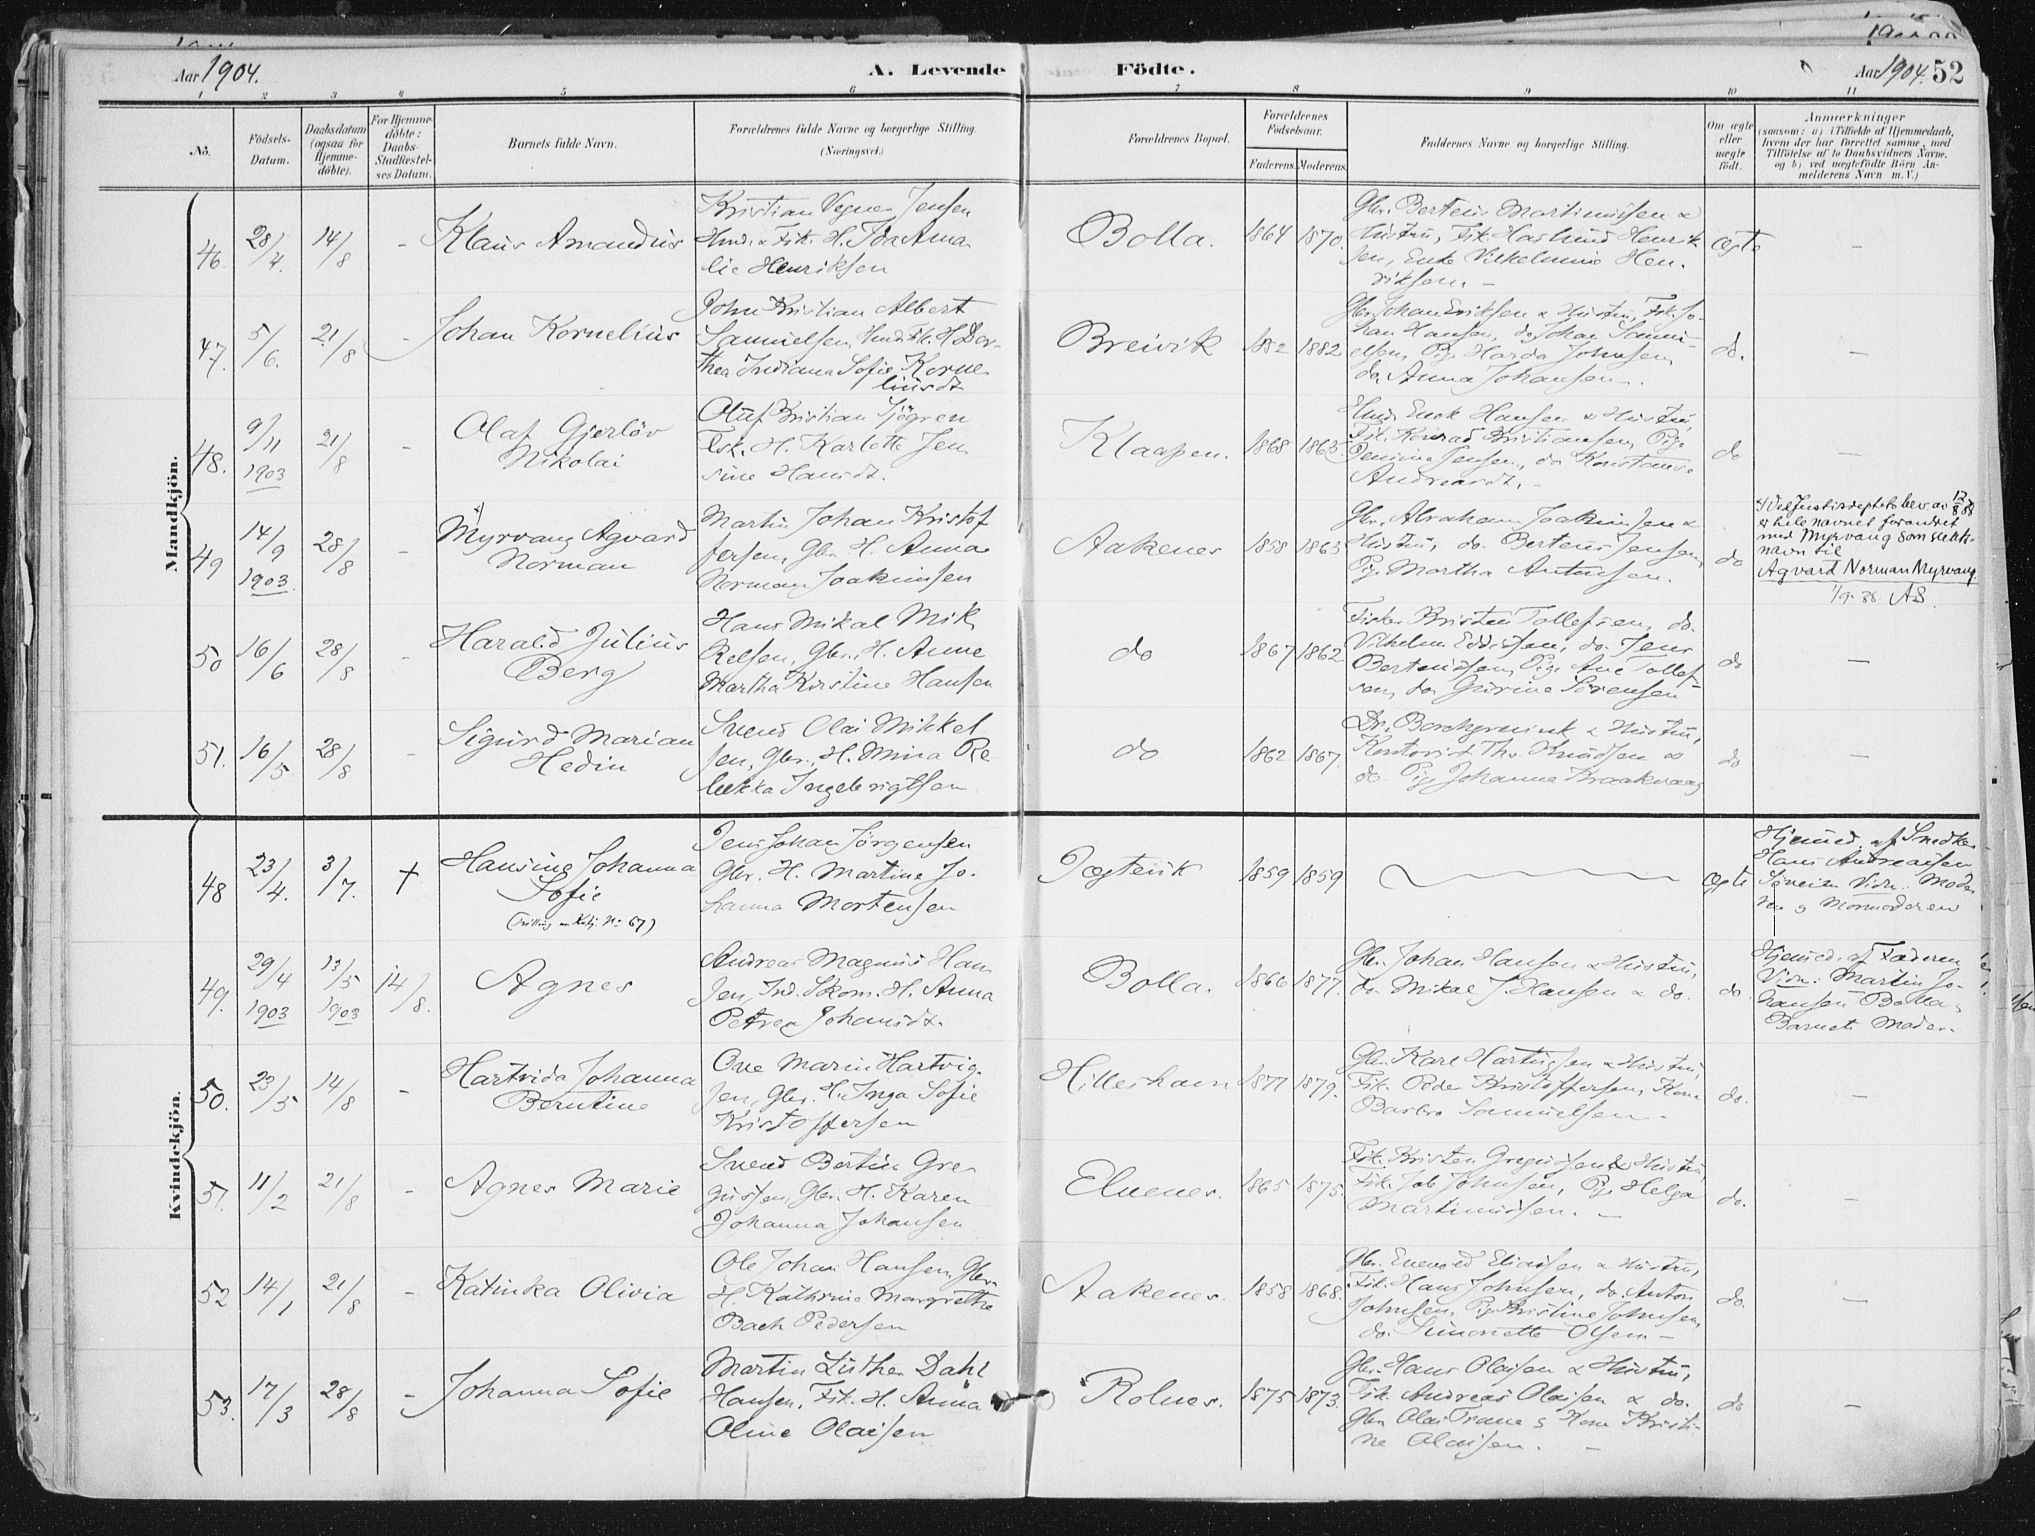 Aar 1904.
A. Levende Födte.
Aar 1904. 52
1 2 3 4 5 6 7 8 9 10 11
No.
Födsels-
Datum.
Daabsdatum
(ogsaa for
Hjemme-
döbte).
For Hjemme-
döbte:
Daabs-
Stadfæstel-
ses Datum.
Barnets fulde Navn.
Forældrenes fulde Navne og borgerlige Stilling.
(Næringsvei.)
Forældrenes Bopæl.
Forældrenes
Födselsaar.
Faderens. Moderens.
Faddernes Navne og borgerlige Stilling.
Om ægte
eller
uægte
födt.
Anmærkninger
(saasom: a) i Tilfælde af Hjemmedaab,
hvem der har forrettet samme, med
Tilföielse af to Daabsvidners Navne,
og b) ved uegtefödte Börn An-
melderens Navn m. V.)
Mandkjön.
46. 28/4. 14/8 - Klaus Amandus
Kristian Vegner Jensen
Hmd. & Fik. H. Ida Ama
lie Henriksen
Bolla. 1864 1870.
Gbr. Berteus Martinussen &
Hustru, Fik. Haslund Henrik
sen, Enke Vilhelmine Hen-
riksen. -
ægte -
47. 5/6. 21/8 - Johan Kornelius
John Kristian Albert
Samuelsen, Hmd. Fik. H. Dor-
thea Indiana Sofie Korne
liusdt
Breivik 1882 1882
Gbr. Johan Eriksen & Hustru, Fik. Jo-
han Hansen, do Johan Samu-
elsen, Pige Harda Johnsen,
do. Anna Johansen.
do. -
48. 9/11 1903 21/8 - Olaf Gjerløv
Nikolai
Oluf Kristian Sjögren
Fsk. H. Karlotte Jen
sine Hansdt.
Klaapen. 1868 1863.
Hmd. Enok Hansen & Hustru
Fik. Konrad Kristiansen, Pige
Jensine Jensen, do Konstanse
Andreasdt. -
do -
49 14/9 1903. 28/8 - Myrvang Agvard
Norman
Martin Johan Kristof
fersen, Gbr. H. Anna
Norman Joakimsen
Aakenes 1858 1863
Gbr. Abraham Joakimsen &
Hustru, do. Berteus Jensen,
Pige Martha Antonsen.
do
Ved Justisdeptets bev. av 12/8 38
er hele navnet forandret
med Myrvang som slekts-
navn til
Agvard Norman Myrvang.
1/9-38 AS.
50 16/6 28/8 - Harald Julius
Berg
Hans Mikal Mik
kelsen, Gbr. H. Anne
Martha Kirstine Hansen
do 1867 1862
Fisker Kristen Tollefsen, do.
Vilhelm Eddissen, do. Jens
Berteussen, Pige Ane Tollef-
sen, do Gurine Sörensen
do -
51. 16/5 28/8 - Sigurd Marian
Hedin
Svend Olai Mikkel
sen, Gbr. H. Mina Re-
bekka Ingebrigtsen
do 1862 1867.
Dr. Borchgrevink & Hustru,
Kontorist Thv. Knudsen &
do. Pige Johanna Kraakvaag
do -
Kvindekjön.
48 23/4. 3/7. + Hansine Johanna
Sofie
Jens Johan Jörgensen
Gbr. H. Martine Jo-
hanna Mortensen
Jægtevik 1859 1859
ægte
Hjemmed. af Snedker
Hans Andreassen
Söveien Vidn.: Mode
ren & Mormoderen
49. 29/4 1903 13/5 1903 14/8. Agnes
Andreas Magnus Han
sen, Ind. Skom. H. Anna
Petrea Johansdt.
Bolla. 1866 1877.
Gbr. Johan Hansen & Hustru,
do Mikal J. Hansen & do.
do.
Hjemmed. af Faderen
Vidn: Martin Jo-
hansen Bolla,
Barnets Moder.
50. 23/5 14/8 - Hartvida Johanna
Berntine
Ove Marin Hartvig-
sen, Gbr. H. Inga Sofie
Kristoffersen
Hilleshavn 1877 1879.
Gbr. Karl Hartvigsen & Hustru
Fik. Peder Kristoffersen, Kone
Barbro Samuelsen -
do. -
51. 11/2 21/8 - Agnes Marie
Svend Bertin Gre-
gussen, Gbr. H. Karen
Johanna Johansen
Elvenes. 1865 1875.
Fik. Kristen Gregussen & Hustru,
Fik. Job Johnsen, Pige Helga
Martinussen. -
do. -
52 14/1 21/8 - Katinka Olivia
Ole Johan Hansen, Gbr.
H. Kathrine Margrethe
Bach Pedersen
Aakenes. 1858 1868.
Gbr. Enevoed Eliassen & Hustru,
Fik. Hans Johnsen, do. Anton
Johnsen, Pige Kristine Johnsen,
do. Simonette Olsen -
do. -
53. 17/3 28/8 - Johanna Sofie
Martin Luther Dahl
Hansen, Fik. H. Anna
Oline Olaisen
Rolnes. 1875 1873.
Gbr. Hans Olaisen & Hustru,
Fik. Andreas Olaisen & do.
Gbr. Olai Trane & Kone Kristi-
ne Olaisen. -
do -